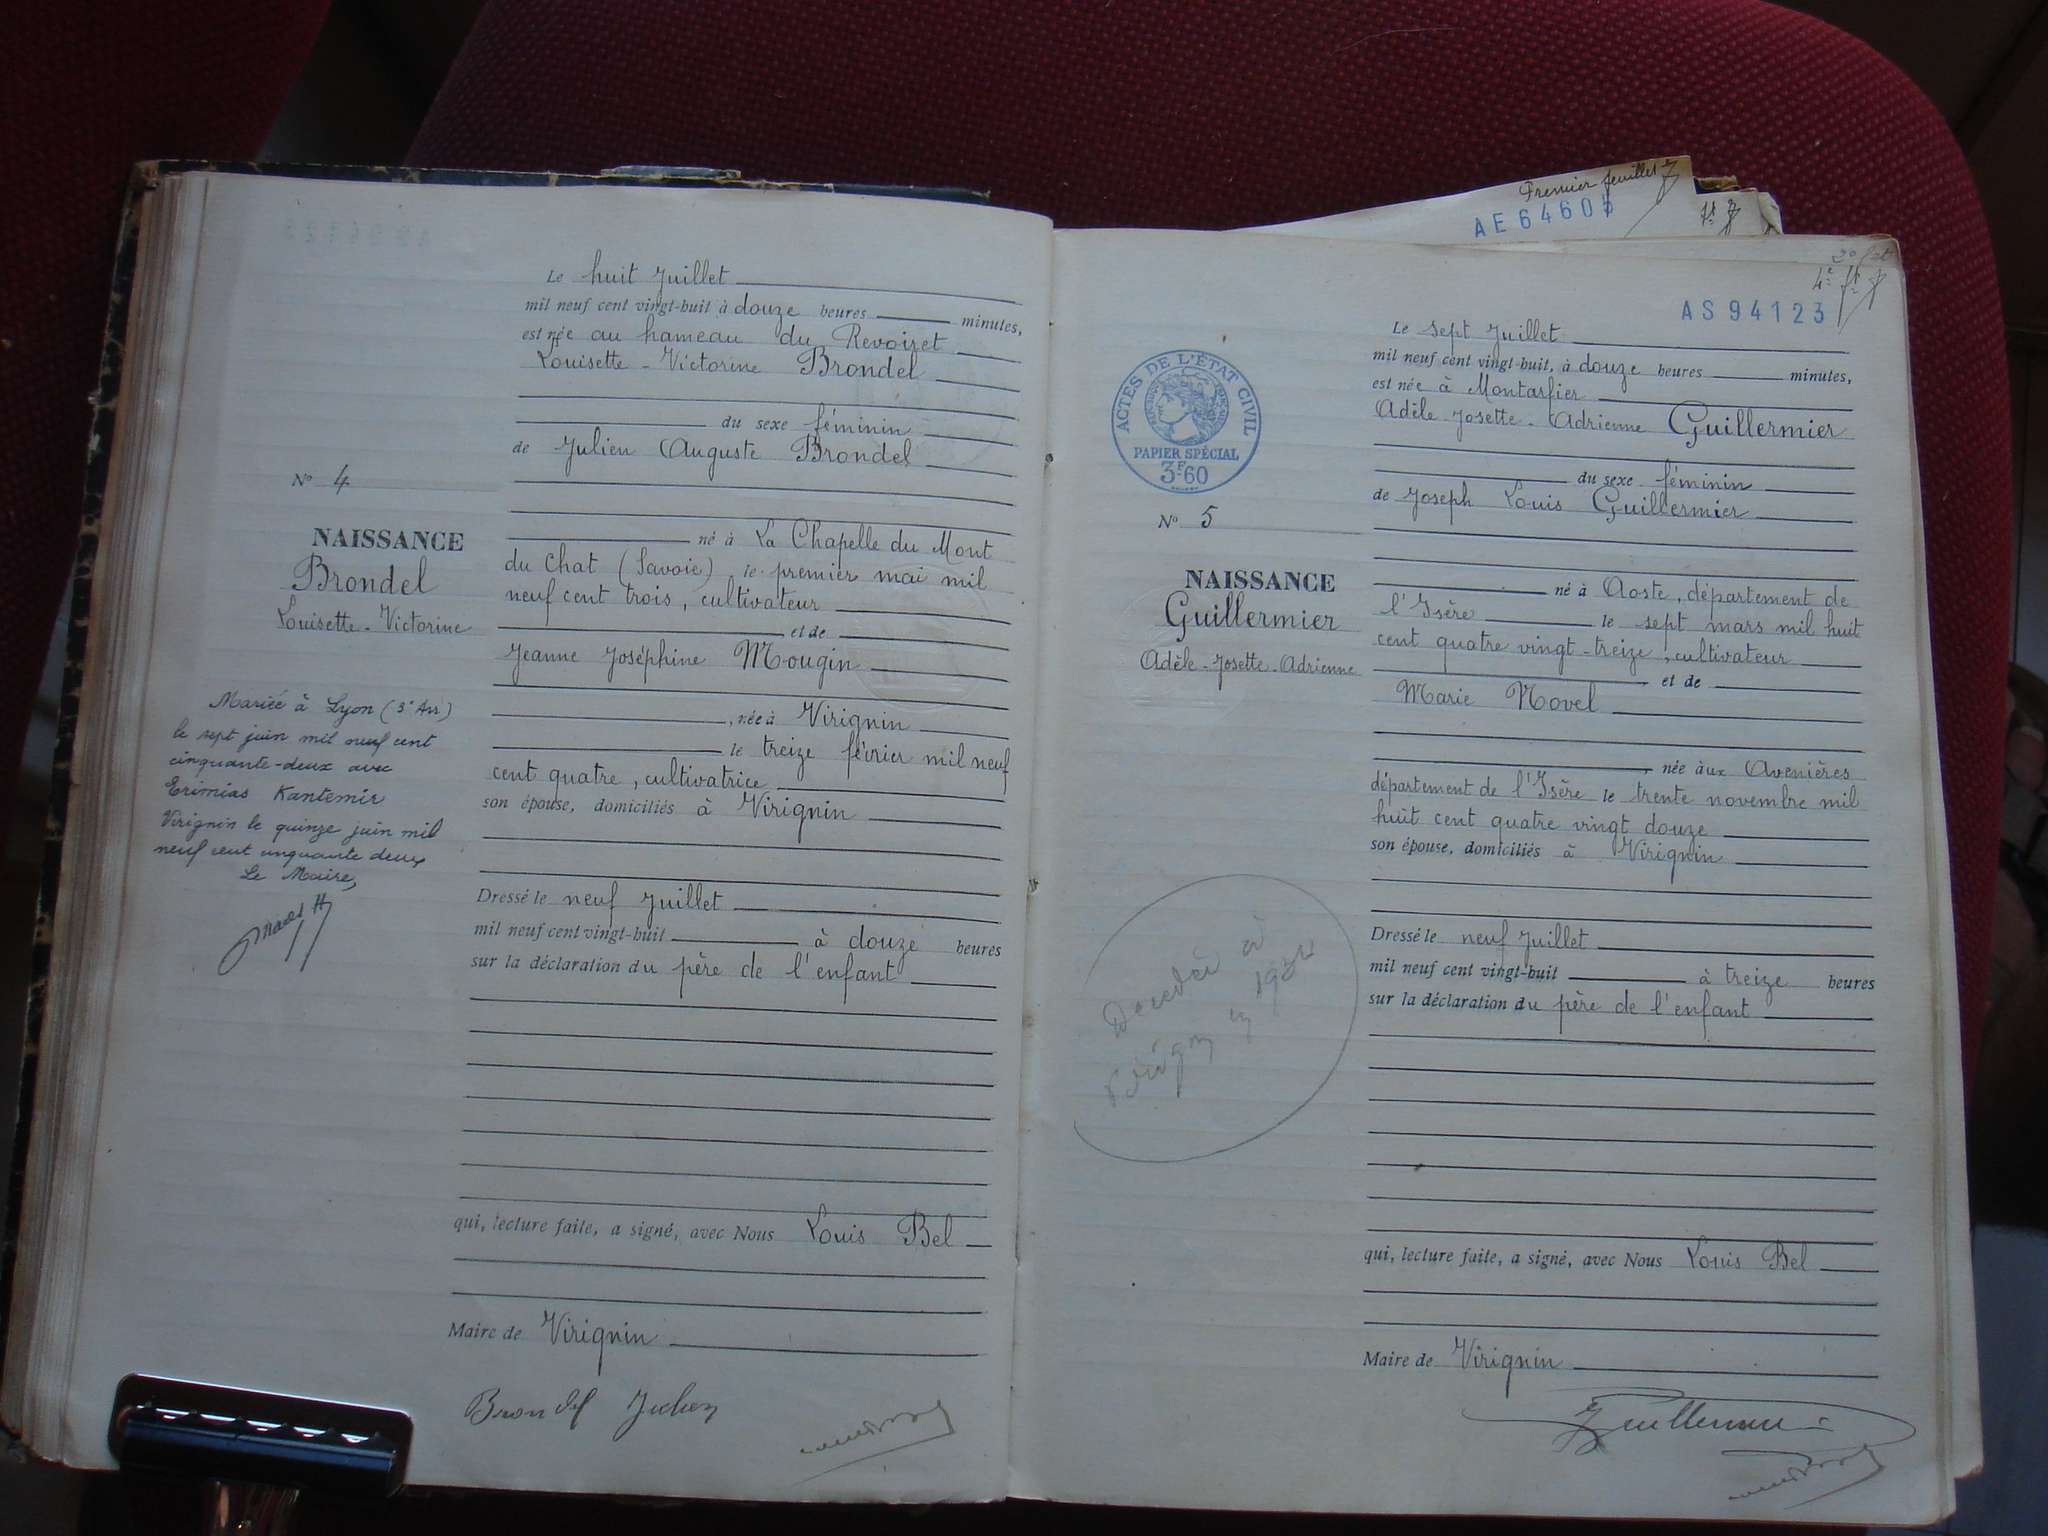 Le huit Juillet
mil neuf cent vingt-huit à douze heures minutes,
est née au hameau du Revoiret
Louisette-Victorine Brondel
du sexe féminin
de Julien Auguste Brondel
N° 4
NAISSANCE
Brondel
Louisette-Victorine
né à La Chapelle du Mont
du Chat (Savoie) le premier mai mil
neuf cent trois, cultivateur
et de
Jeanne Joséphine Mougin
, née à Virignin
le treize février mil neuf
cent quatre, cultivatrice
son épouse, domiciliés à Virignin
Mariée à Lyon (3e Arr)
le sept juin mil neuf cent
cinquante-deux avec
Erimias Kantemir
Virignin le quinze juin mil
neuf cent cinquante deux
Le Maire,
Dressé le neuf Juillet
mil neuf cent vingt-huit à douze heures
sur la déclaration du père de l'enfant
qui, lecture faite, a signé, avec Nous Louis Bel
Maire de Virignin
Brondel Julien
Premier feuillet
AE 6460
AS 94123
ACTES DE L'ÉTAT CIVIL
PAPIER SPÉCIAL
3F60
Le sept Juillet
mil neuf cent vingt-huit, à douze heures minutes,
est née à Montarfier
Adèle-Josette-Adrienne Guillermier
du sexe féminin
de Joseph Louis Guillermier
N° 5
NAISSANCE
Guillermier
Adèle-Josette-Adrienne
né à Aoste, département de
l'Isère le sept mars mil huit
cent quatre vingt-treize, cultivateur
et de
Marie Novel
, née aux Avenières
département de l'Isère le trente novembre mil
huit cent quatre vingt douze
son épouse, domiciliés à Virignin
Dressé le neuf Juillet
mil neuf cent vingt-huit à treize heures
sur la déclaration du père de l'enfant
qui, lecture faite, a signé, avec Nous Louis Bel
Maire de Virignin